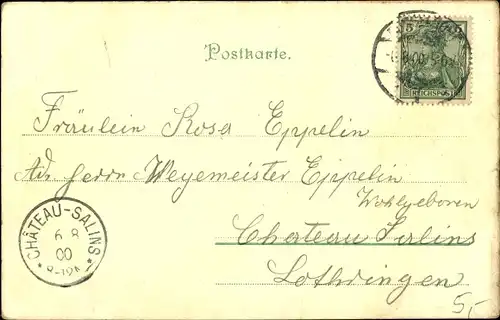 Postkarte.
5
REICHSPOST
Fräulein Rosa Eppelin
Adr. Herrn Wegemeister Eppelin
Wohlgeboren
Chateau Salins
Lothringen
* CHÂTEAU-SALINS *
6 8
00
5,-